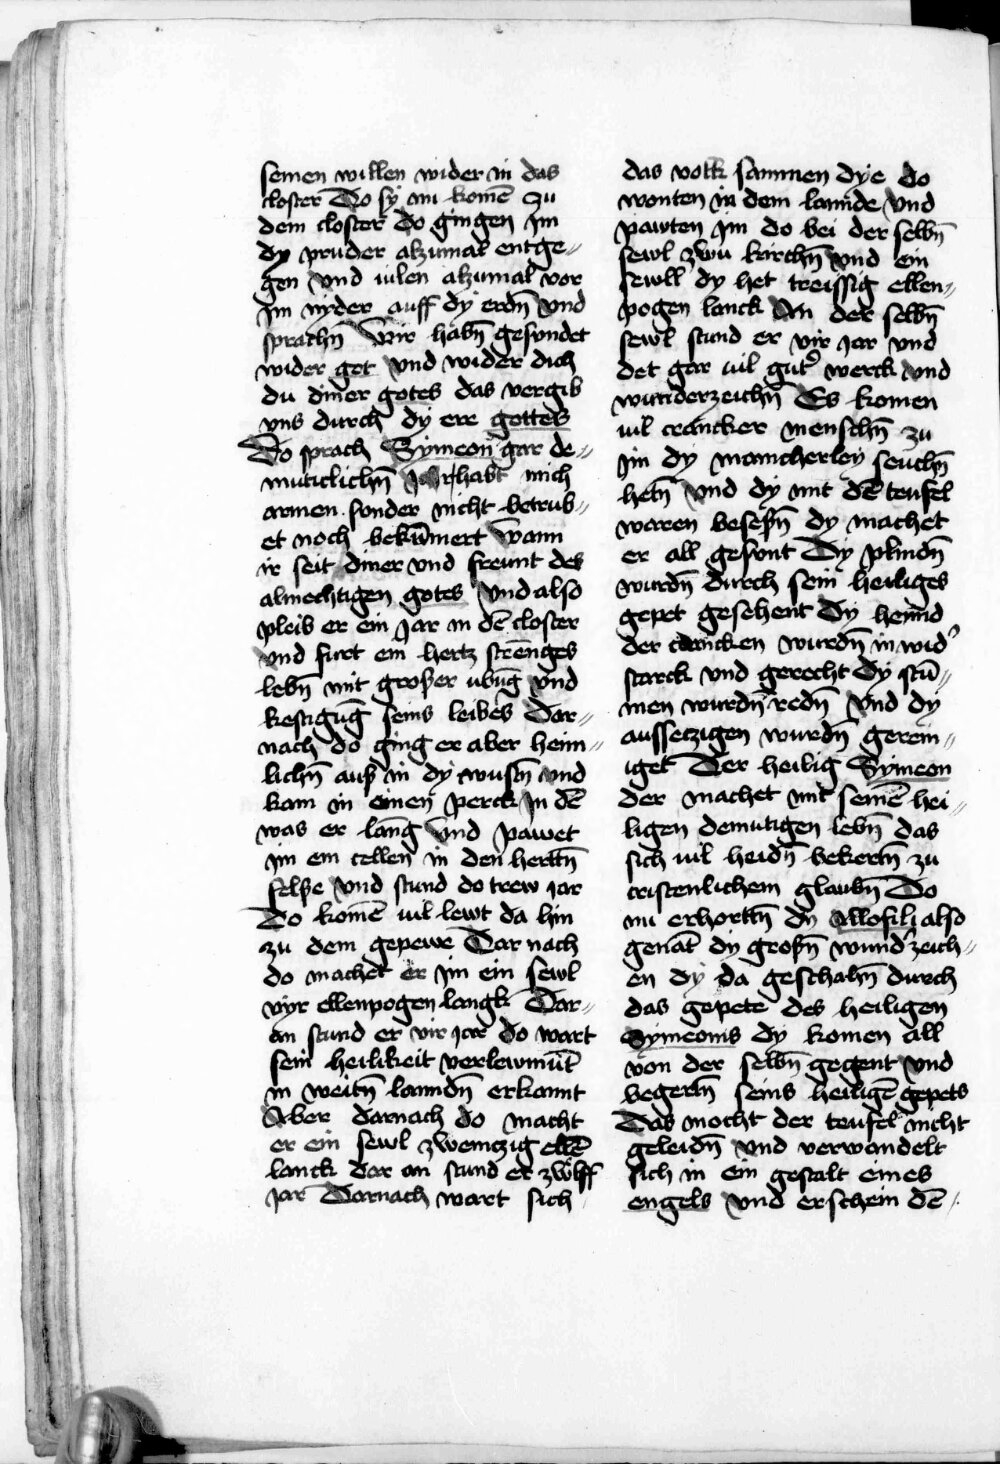 seinen willen wider in das
closter Do sy nu komē zu
dem closter do gingen im
dy pruder alzumal entge⸗
gen vnd uilen alzumal vor
jm nyder auff dy erdn̄ vnd
sprachn̄ Wir habn̄ gesundet
wider got vnd wider dich
du diner gotes das vergib
vns durch dy ere gottes
Do sprach Symeon gar de⸗
muticlichn̄ habt mich
armen sunder nicht betrub⸗
et noch bekūmert wann
ir seit diner vnd freunt des
almechtigen gotes vnd also
pleib er ein jar in dē closter
vnd furt ein hertz strēnges
lebn̄ mit groser ubūg vnd
kestigūg seins leibes Dar⸗
nach do ging er aber heim⸗
lichn̄ auß in dy wustn̄ vnd
kam in einen perck jn dē
was er lang vnd pawet
jm ein cellen in den hertn̄
felse vnd stund do trew jar
Do komē uil lewt da hin
zu dem gepewe Dar nach
do machet er im ein sewl
vyr ellenpogen langk Dar⸗
an stund er vir jar do wart
sein heilikeit verlewmūt
in weitn̄ lanndn̄ erkannt
Aber darnach do macht
er ein sewl zweinczig ellē
lanck dar an stund er zwölff
jar Darnach wart sich
das volk sammen dye do
wonten in dem lannde vnd
pawten jm do bei der selbn̄
sewl zwu kirchn̄ vnd ein
sewll dy het treissig ellen⸗
pogen lanck An der selbn̄
sewl stund er vir jar vnd
det gar uil gut᾽ werck vnd
wunderzeichn̄ Es komen
uil crancker menschn̄ zu
jm dy mancherley seuchn̄
hetn̄ vnd dy mit dē teufel
waren besessn̄ dy machet
er all gesunt Dy plindn̄
wurdn̄ durch sein heiliges
gepet gesehent Dy hennd
der krancken wurdn̄ in wid᾽
starck vnd gerecht dy stū⸗
men wurdn̄ redn̄ vnd dy
aussetzigen wurdn̄ gerein⸗
iget Der heilig Symeon
der machet mit seinē hei⸗
ligen demutigen lebn̄ das
sich uil heidn̄ bekertn̄ zu
cristenlichem glaubn̄ Do
nu erhortn̄ dy Allofili also
genāt dy grosn̄ wund᾽zeich⸗
en dy da geschahn̄ durch
das gepete des heiligen
Symeonis dy komen all
von der selbn̄ gegent vnd
begertn̄ seins heiligē gepets
Das mocht der teufel nicht
geleidn̄ vnd verwandelt
sich in ein gestalt eines
engels vnd erschein dē